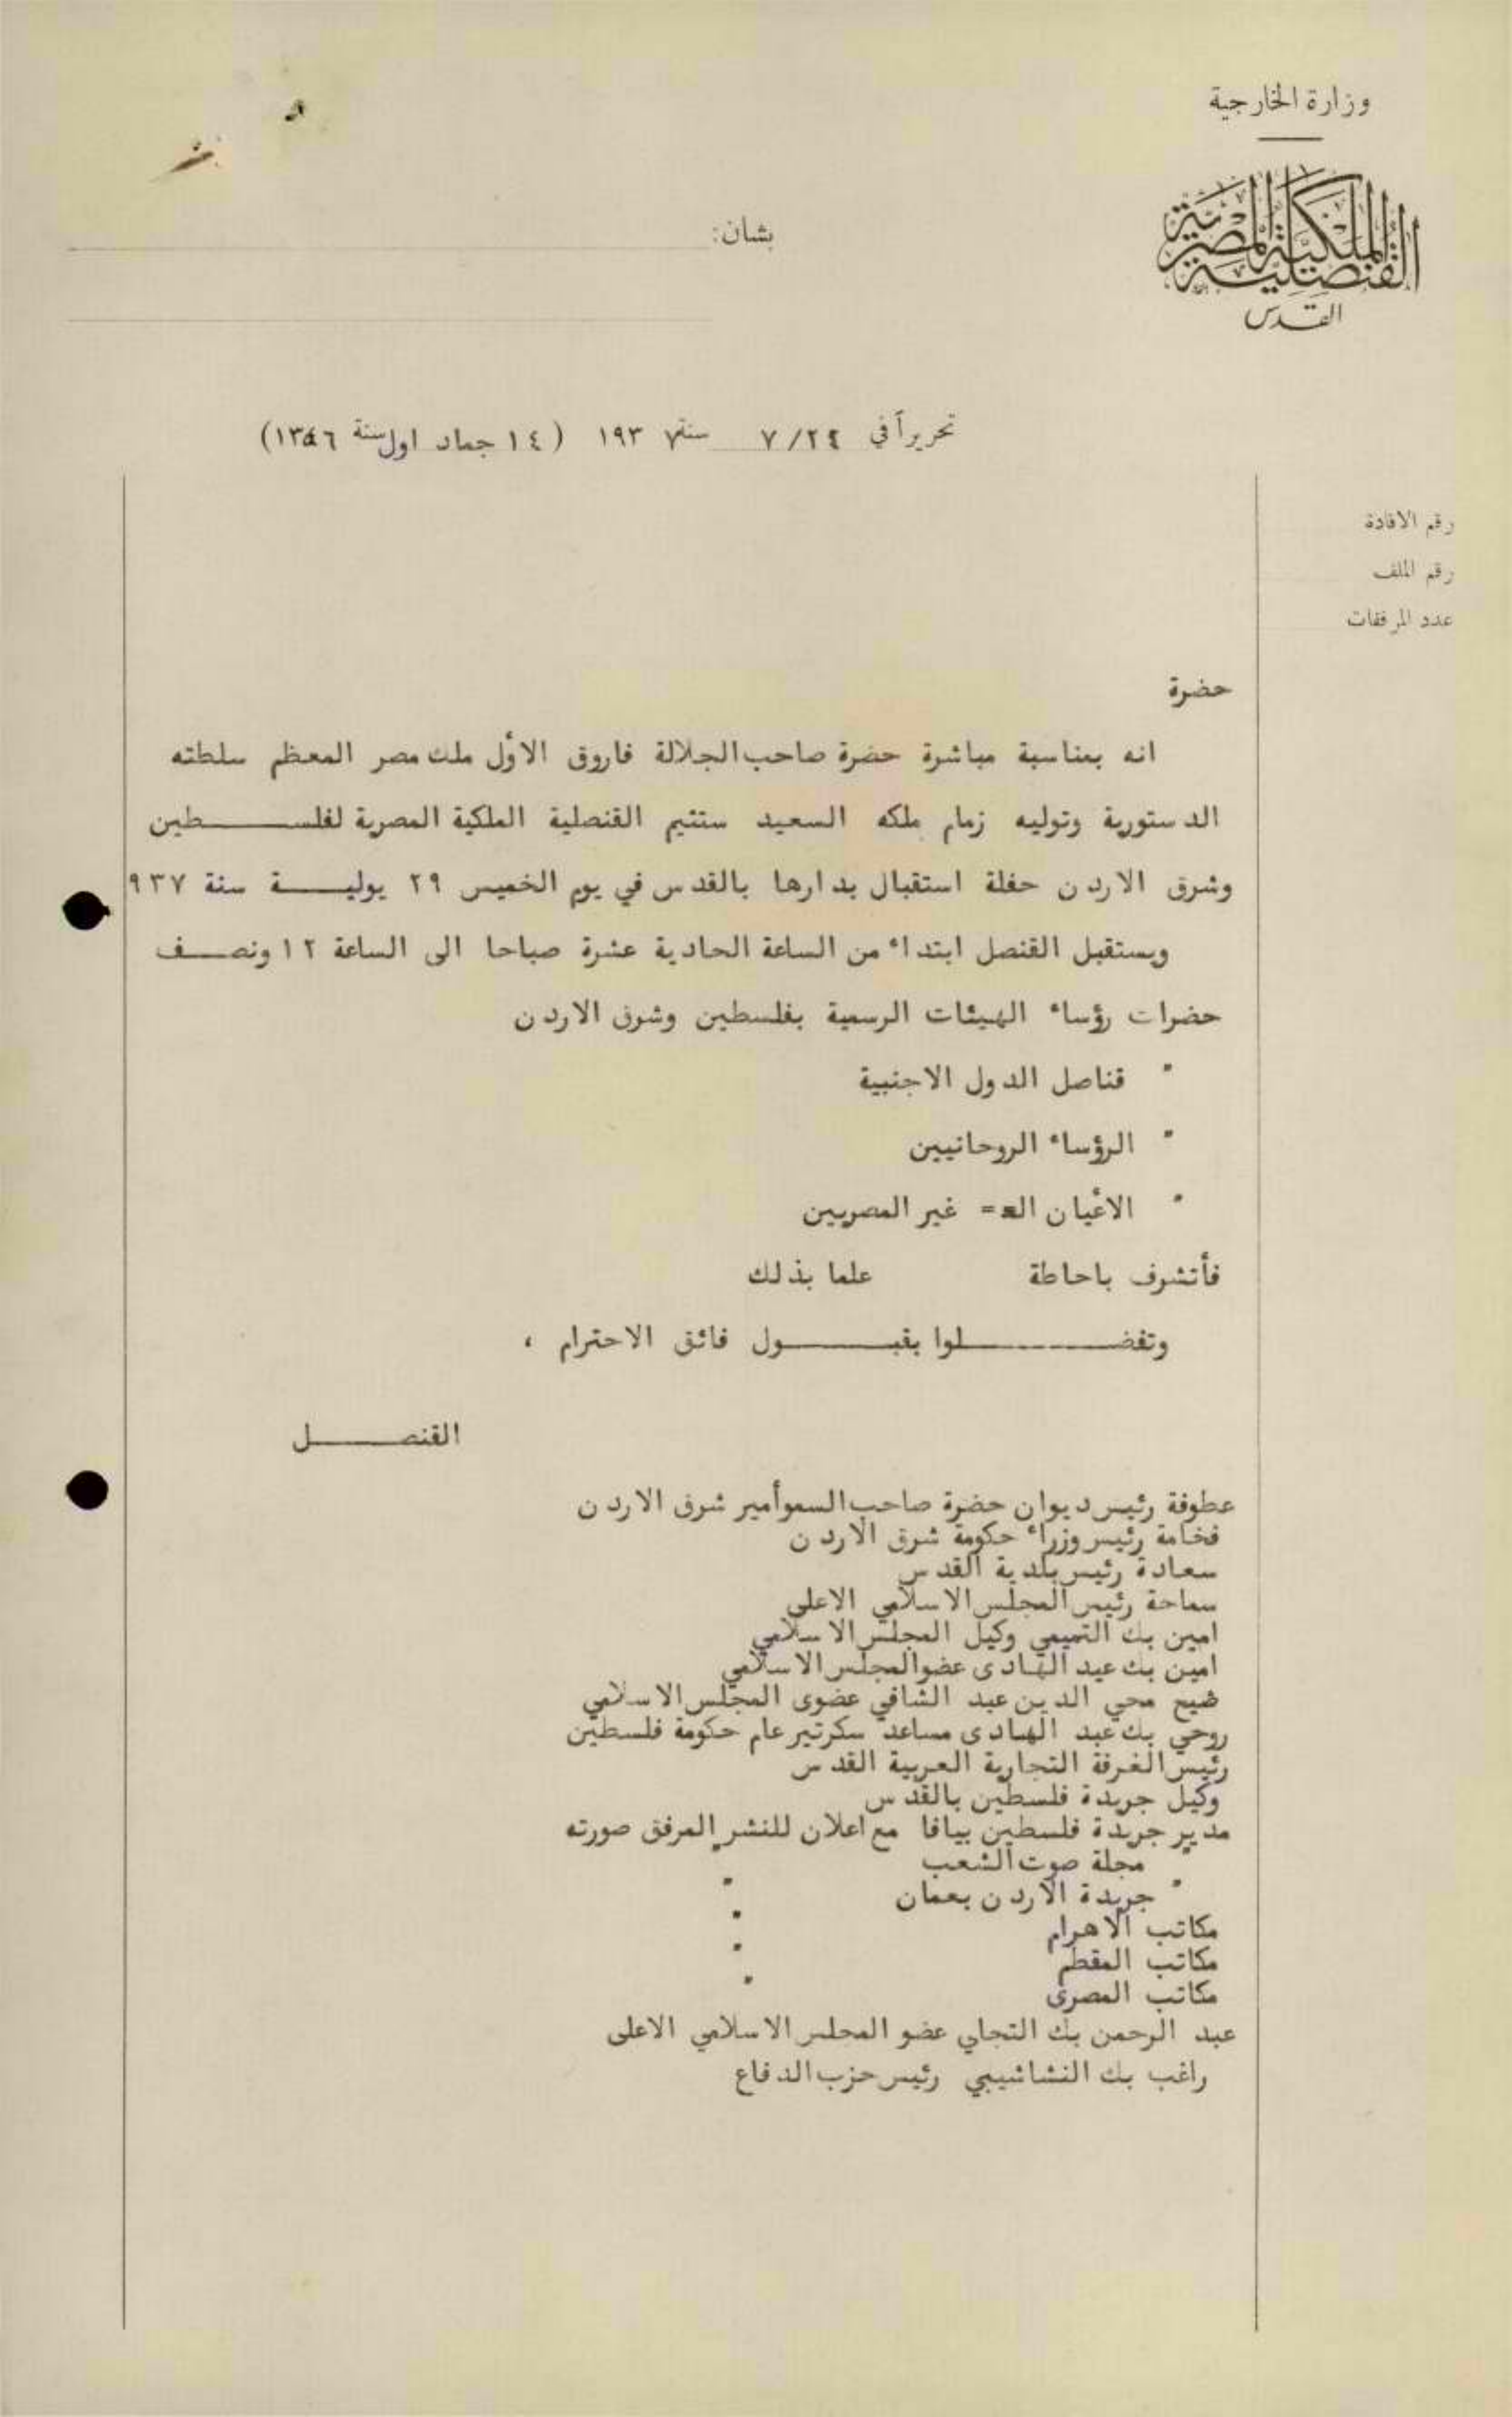 وزارة الخارجية
القنصلية الملكية المصرية
القدس
بشان:
تحريرآ في ٧/٢٢ سنة ١٩٣٧ (١٤ جماد اول سنة ١٣٥٦)
رقم الافادة
رقم الملف
عدد المرفقات
حضرة
انه بمناسبة مباشرة حضرة صاحب الجلالة فاروق الاول ملك مصر المعظم سلطته
الدستورية وتوليه زمام ملكه السعيد ستقيم القنصلية الملكية المصرية لفلسطين
وشرق الاردن حفلة استقبال بدارها بالقدس في يوم الخميس ٢٩ يولية سنة ٩٣٧
ويستقبل القنصل ابتداء من الساعة الحادية عشرة صباحا الى الساعة ١٢ ونصف
حضرات رؤساء الهيئات الرسمية بفلسطين وشرق الاردن
" قناصل الدول الاجنبية
" الرؤساء الروحانيين
" الاعيان = غير المصريين
فأتشرف باحاطة علما بذلك
وتفضلوا بقبول فائق الاحترام ،
القنصل
عطوفة رئيس ديوان حضرة صاحب السمو أمير شرق الاردن
فخامة رئيس وزراء حكومة شرق الاردن
سعادة رئيس بلدية القدس
سماحة رئيس المجلس الاسلامي الاعلى
امين بك التميمي وكيل المجلس الاسلامي
امين بك عبد الهادى عضو المجلس الاسلامي
شيح محي الدين عبد الشافي عضوى المجلس الاسلامي
روحي بك عبد الهادى مساعد سكرتير عام حكومة فلسطين
رئيس الغرفة التجارية العربية القدس
وكيل جريدة فلسطين بالقدس
مدير جريدة فلسطين بيافا مع اعلان للنشر المرفق صورته
" مجلة صوت الشعب "
" جريدة الاردن بعمان "
مكاتب الاهرام "
مكاتب المقطم "
مكاتب المصرى "
عبد الرحمن بك التجاي عضو المجلس الاسلامي الاعلى
راغب بك النشاشيبي رئيس حزب الدفاع